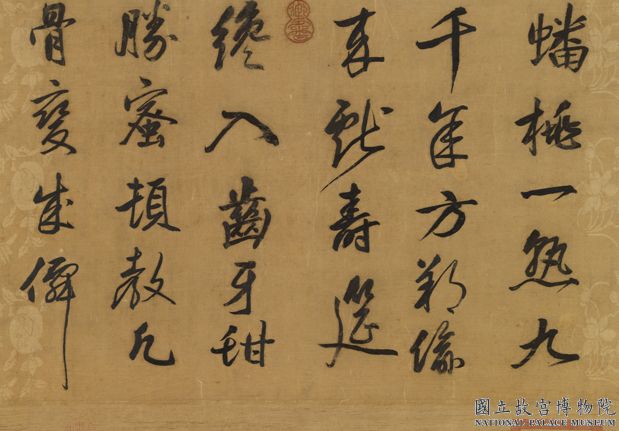 蟠桃一熟九
千年方朔偷
來獻壽筵
纔入齒牙甜
勝蜜頓教凡
骨變成僊
國立故宮博物院
NATIONAL PALACE MUSEUM